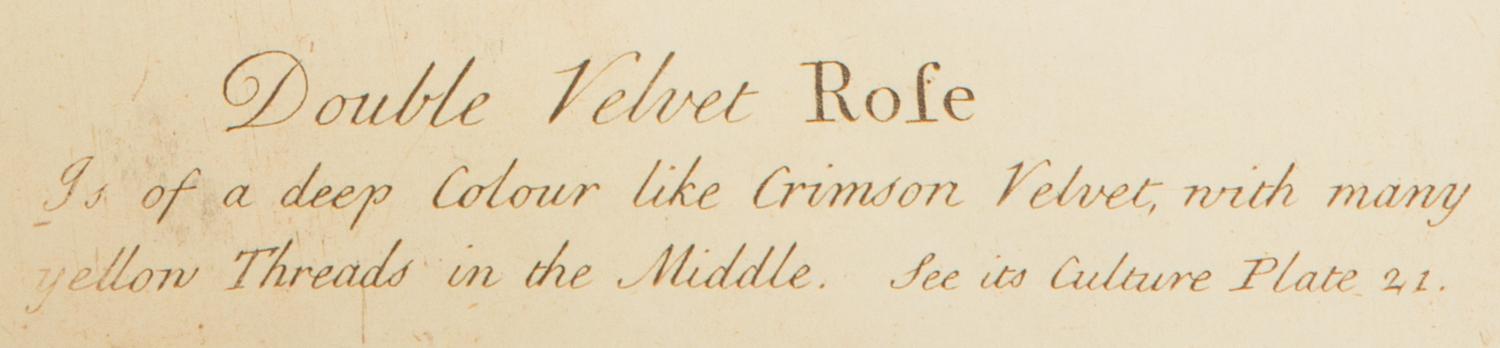 Double Velvet Roſe
Is of a deep Colour like Crimson Velvet, with many
yellow Threads in the Middle. See its Culture Plate 21.